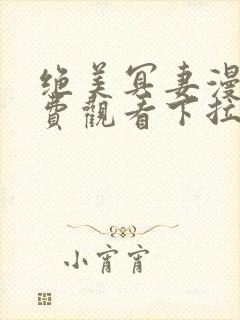 绝美冥妻漫
费觀看下拉
小宵宵